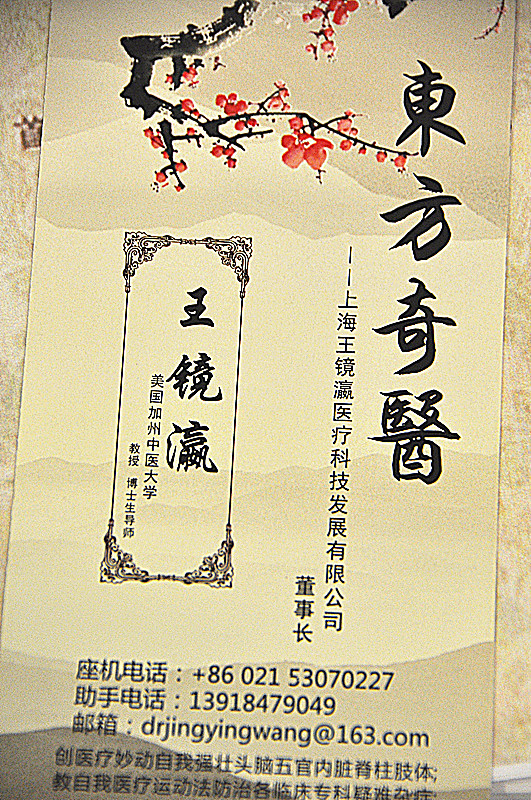 東方奇醫
——上海王镜瀛医疗科技发展有限公司
董事长
王镜瀛
美国加州中医大学
教授 博士生导师
座机电话：+86 021 53070227
助手电话：13918479049
邮箱：drjingyingwang@163.com
创医疗妙动自我强壮头脑五官内脏脊柱肢体;
教自我医疗运动法防治各临床专科疑难杂症;